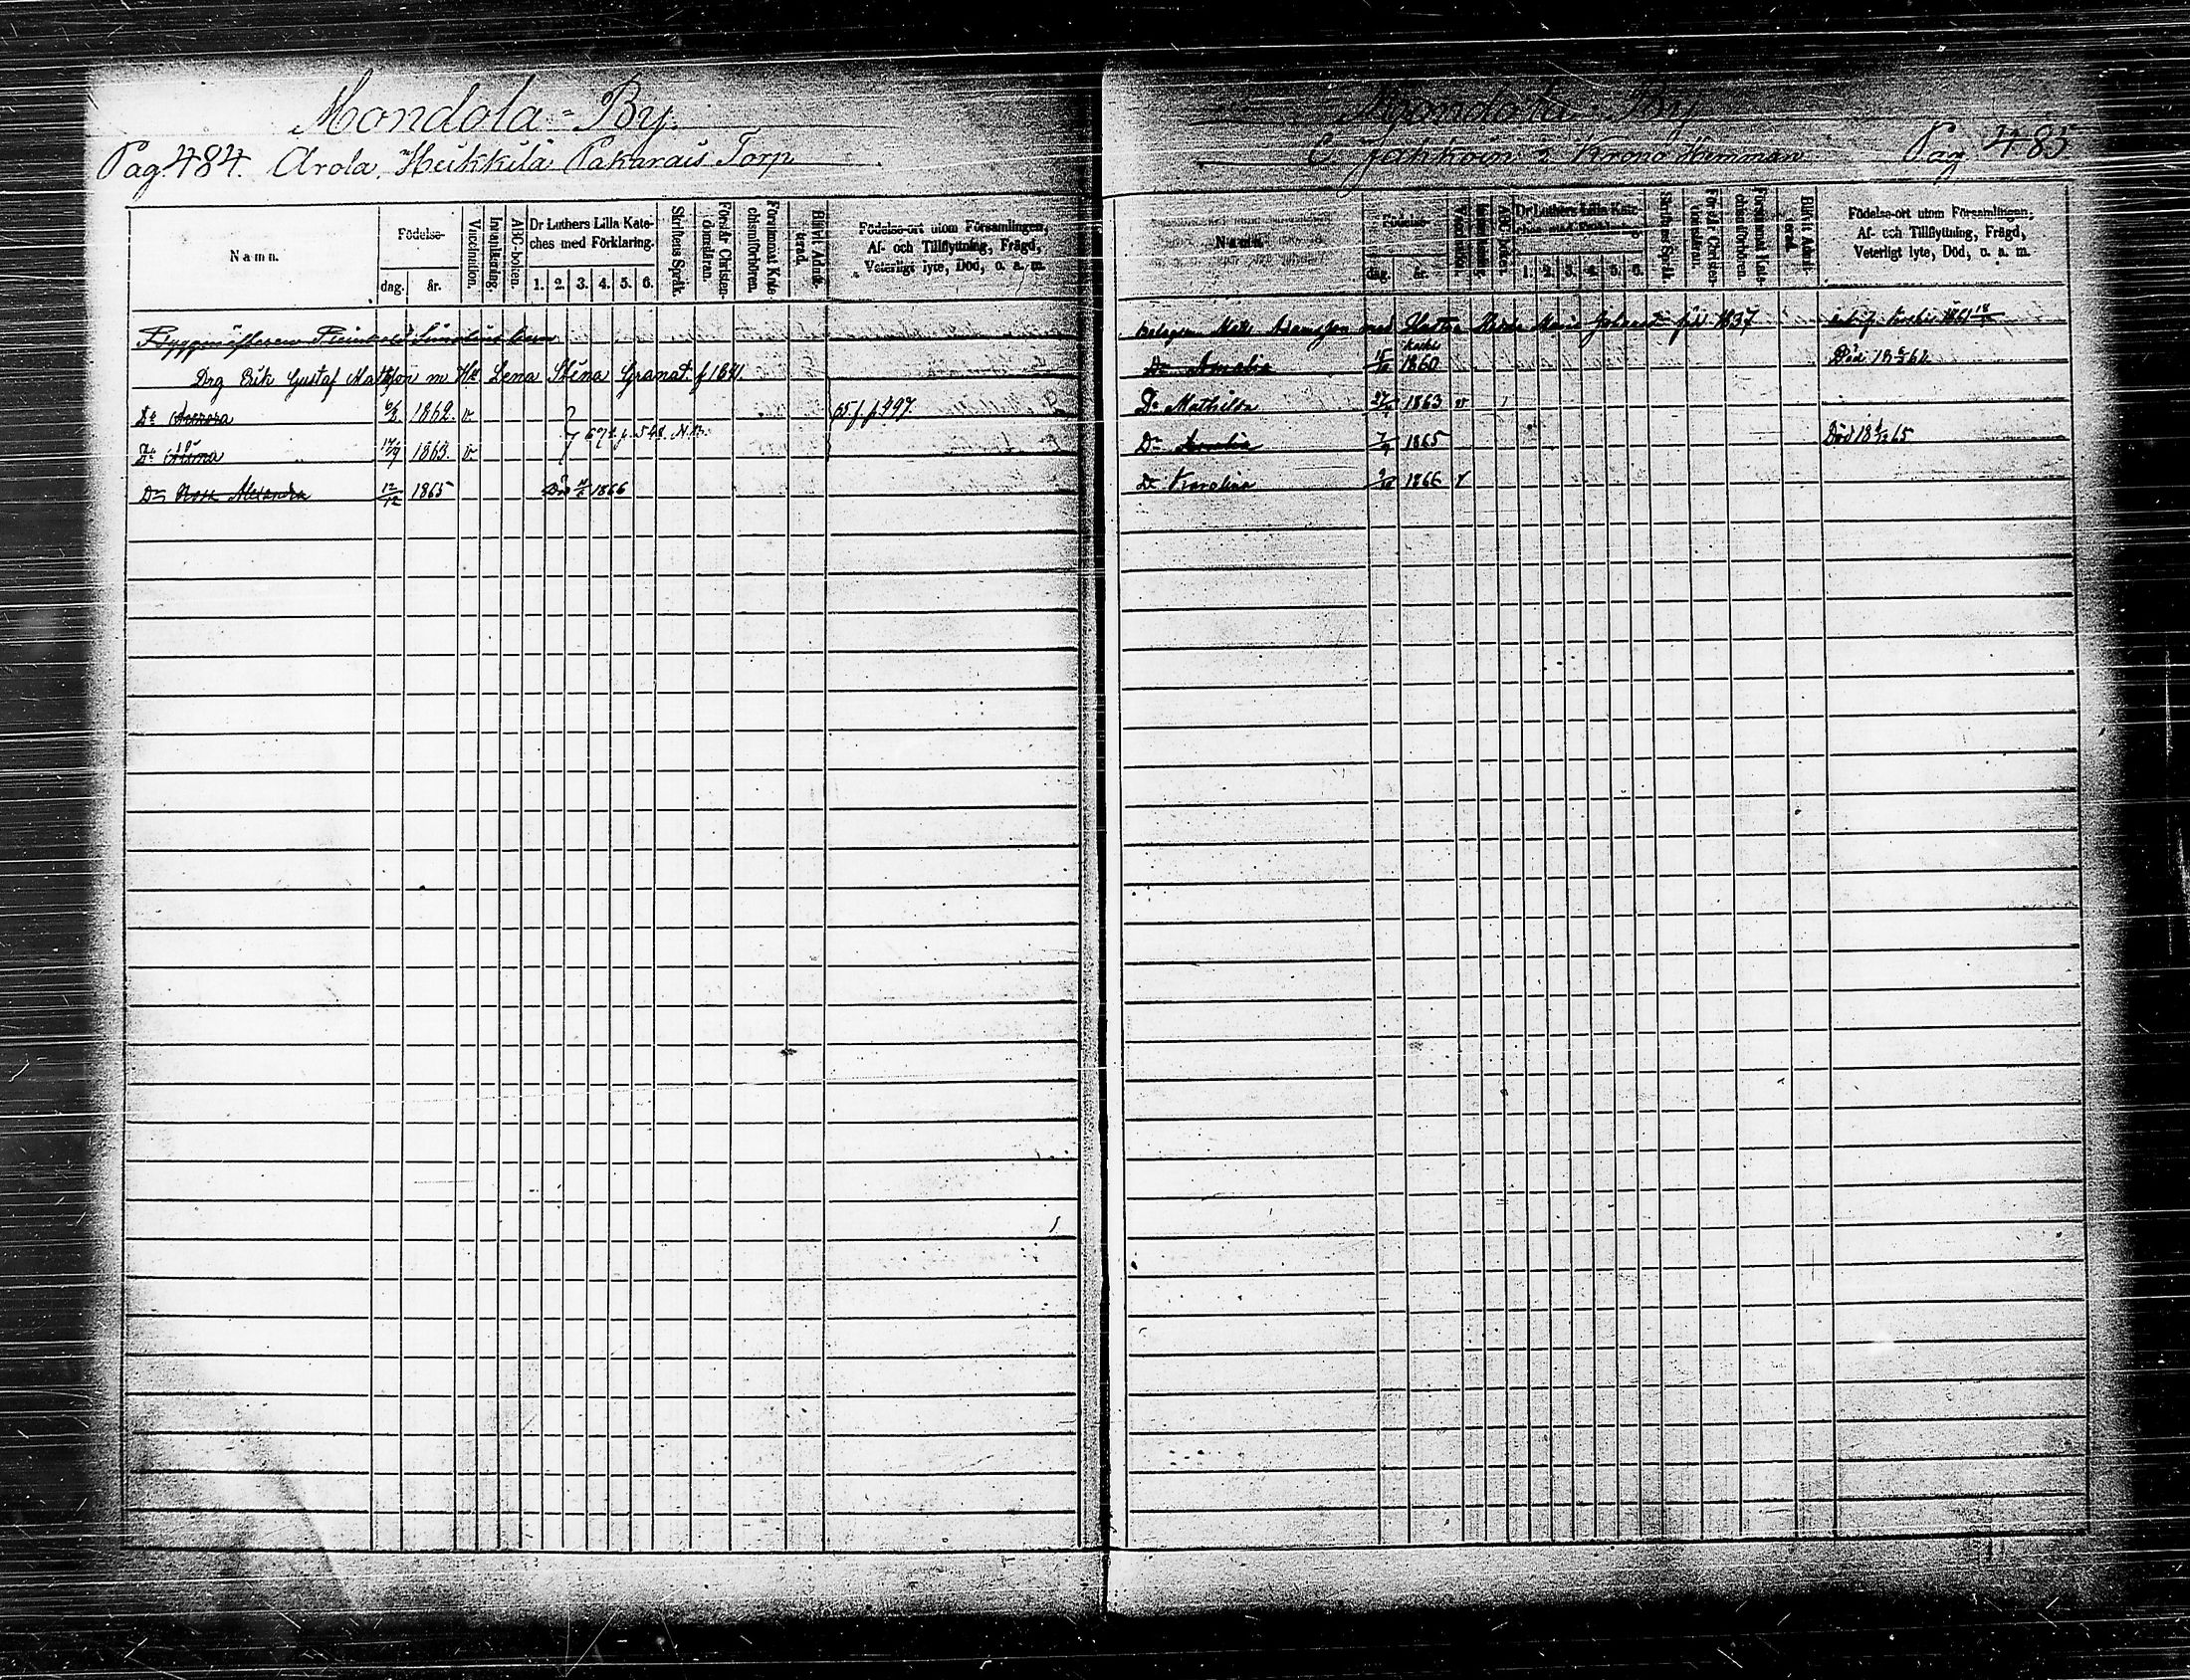 Mondola-By.
Pag. 484. Arola, Heikkilä Pakarais Torp
Namn.
Födelse-
dag. år.
Vaccination.
Innanläsning.
ABC-boken.
Dr Luthers Lilla Kate-
ches med Förklaring.
1. 2. 3. 4. 5. 6.
Skriftens Språk.
Förstår Christen-
domsläran.
Försummat Kate-
chismiförhören.
Blifvit Admit-
terad.
Födelse-ort utom Församlingen,
Af- och Tillflyttning, Frägd,
Veterligt lyte, Död, o. a. m.
Drg Erik Gustaf Matsson m H: Lena Stina Granat f 1841.
Do Aurora 6/3 1862. v. 65 f. p 497.
67 f. p. 548. N.B.
Do Alma 17/9 1863. v.
Do Rosa Alexandra 12/12 1865 Död 1866
Mondola By
Jahkoin 2 Krono Hemman Pag 485
Namn.
Födelse-
dag. år.
Vaccination.
Innanläsning.
ABC-boken.
Dr Luthers Lilla Kate-
ches med Förklaring
1. 2. 3. 4. 5. 6.
Skriftens Språk.
Förstår Christen-
domsläran.
Försummat Kate-
chismiförhören.
Blifvit Admit-
terad.
Födelse-ort utom Församlingen,
Af- och Tillflyttning, Frägd,
Veterligt lyte, Död, o. a. m.
Matts Adamsson med Maria 1837 1861
Dr Amalia 1860 Död 62
Dr Mathilda 27 1863 v
Dr Amalia 7 1865 Död 18 65
Dr Karolina 1866 v